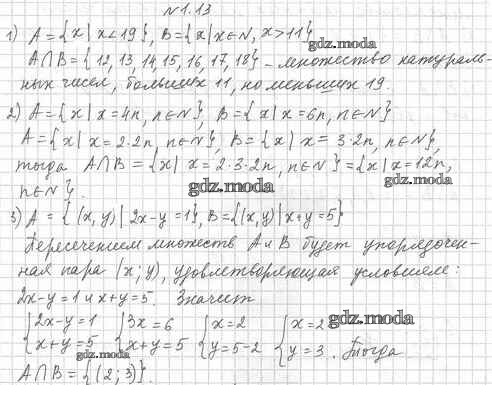 №1.13
1) A = {x | x < 19}, B = {x | x ∈ N, x > 11}
gdz.moda
A∩B = {12, 13, 14, 15, 16, 17, 18} - множество натураль-
ных чисел, больших 11, но меньших 19.
2) A = {x | x = 4n, n∈N}, B = {x | x = 6n, n∈N}
A = {x | x = 2·2n, n∈N}, B = {x | x = 3·2n, n∈N},
тогда A∩B = {x | x = 2·3·2n, n∈N} = {x | x = 12n,
n∈N}.
gdz.moda gdz.moda
3) A = {(x, y) | 2x-y = 1}, B = {(x, y) | x+y = 5}
Пересечением множеств A и B будет упорядочен-
ная пара (x; y), удовлетворяющая условиям:
2x-y = 1 и x+y = 5. Значит
{2x-y = 1 {3x = 6 {x = 2 {x = 2 gdz.moda
{x+y = 5 {x+y = 5 {y = 5-2 {y = 3. Тогда
gdz.moda
A∩B = {(2; 3)}.